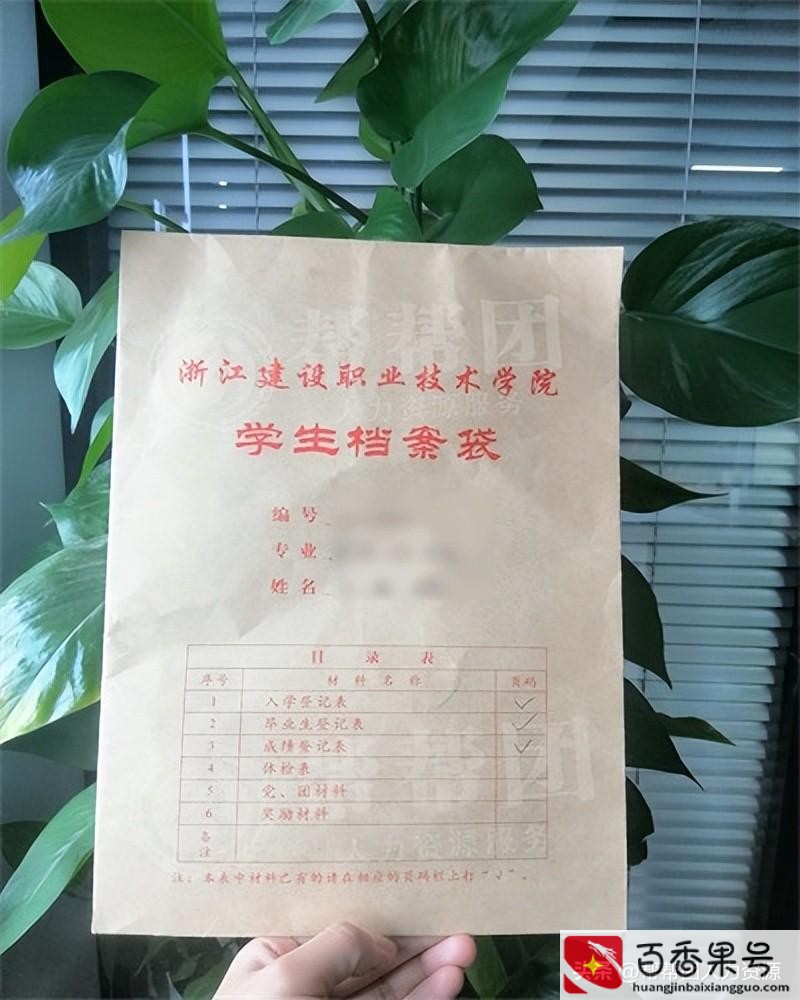 帮帮团
浙江建设职业技术学院
人力资源服务
学生档案袋
编号
专业
姓名
目 录 表
序号 材料名称 页码
1 入学登记表 ✓
2 毕业生登记表 ✓
3 成绩登记表 ✓
4 体检表
5 党、团材料
6 奖励材料
备注
帮团
人力资源服务
注：本表中材料已有的请在相应的页码栏上打“√”。
头条 @邦帮团人力资源
百香果号
huangjinbaixiangguo.com